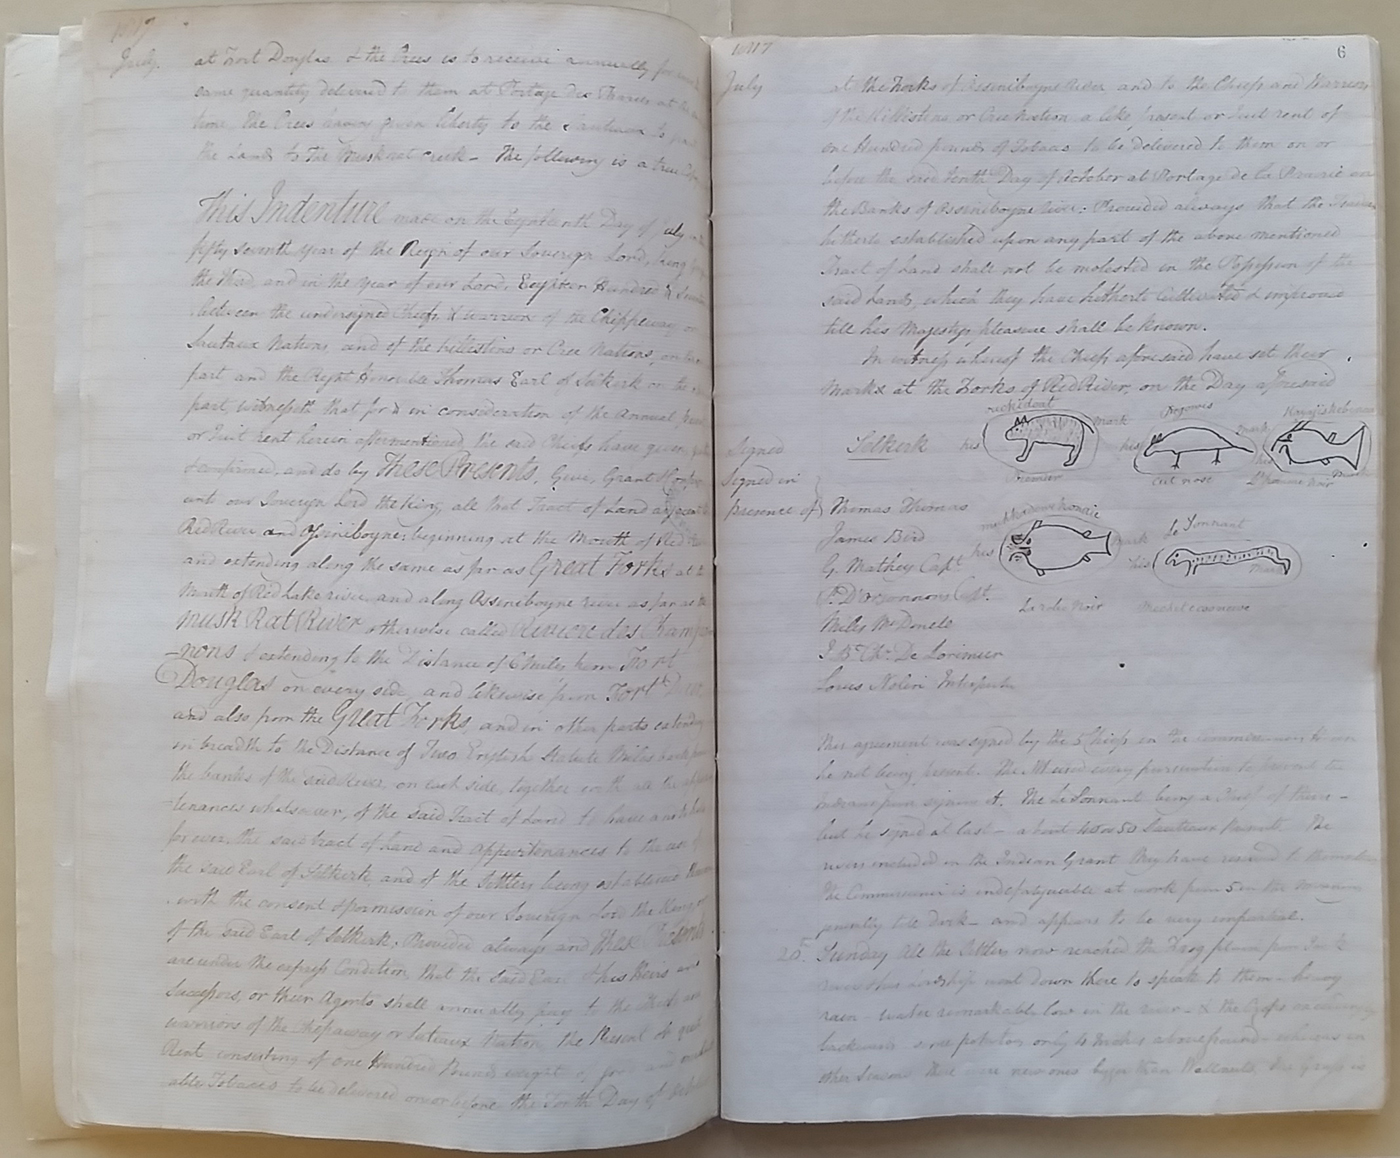 1817
July.
at Fort Douglas. & the Crees is to receive annually for
same quantity delivered to them at Portage des Prairies at the
time. The Crees having given liberty to the Sauteaux to
the Lands to the Muskrat Creek - The following is a true
This Indenture made on the Eighteenth Day of July
fifty seventh year of the Reign of our Sovereign Lord, King
the third, and in the year of our Lord, Eighteen Hundred &
between the undersigned Chiefs & warriors of the Chippeway or
Sautaux Nation, and of the Killistins or Cree Nations, on
part and the Right Honorible Thomas Earl of Selkirk on the
part, witnesseth that for & in consideration of the Annual
or Quit rent herein aftermentioned, the said Chiefs have given,
& confirmed, and do by These Presents, Give, Grant &
unto our Sovereign Lord the King, all that Tract of Land adjacent
Red River and Assiniboyne, beginning at the Mouth of Red
and extending along the same as far as Great Forks at the
Mouth of Red Lake river, and along Assiniboyne river as far as the
Musk Rat River otherwise called Riviere des Champ
-nons & extending to the Distance of 6 Miles from Fort
Douglas on every side, and likewise from Fort
and also from the Great Forks, and in other parts extending
in breadth to the Distance of Two English Statute Miles back from
the banks of the said River, on each side, together with all the
-tenances whatsoever, of the said Tract of Land to have and to hold
for ever, the said tract of Land and appurtenances to the use of
the said Earl of Selkirk, and of the Settlers being established
with the consent & permission of our Sovereign Lord the King, or
of the said Earl of Selkirk, Provided always and these Presents
are under the express Condition that the said Earl & his Heirs and
Successors, or their Agents shall annually pay to the Chiefs and
warriors of the Chippaway or Sauteaux Nation the Present or quit
Rent consisting of one Hundred Pounds weight of good and
able Tobacco to be delivered on or before the Tenth Day of
1817
6
July
at the Forks of Assiniboyne River and to the Chiefs and Warriors
of the Killistins or Cree Nation a like Present or Quit rent of
one Hundred pounds of Tobacco to be delivered to them on or
before the said tenth Day of October at Portage de la Prairie on
the Banks of Assiniboyne River: Provided always that the
hitherto established upon any part of the above mentioned
Tract of Land shall not be molested in the Possession of the
said Lands which they have hitherto Cultivated & improved
till his Majestys pleasure shall be known.
In witness whereof the Chiefs aforesaid have set their
Marks at the Forks of Red River, on the Day aforesaid
Signed
Selkirk
his
mark
Premier
his
mark
his
L'homme Noir
Signed in
presence of
Thomas Thomas
James Bird
G. Mathey Capt.
P. D'orsonnens Cpt.
Miles McDonell
J. Bt. Chr. De Lorimier
Louis Nolin Interpreter
his
mark
La robe Noir
Le Sonnant
his
mark
This agreement was signed by the 5 Chiefs in the
he not being present. The used every persuasion to prevent the
from signing it. The Le Sonnant being a Chief of theirs -
but he signed at last - about 40 or 50 Sauteaux Present. The
rivers included in the Indian Grant they have reserved to themselves
The Commissioner is indefatiguable at work from 5 in the morning
till Dark - and appears to be very impartial.
20th
Sunday All the Settlers now reached the Frog plains from Jack
river his Lordship went down there to speak to them - heavy
rain - water remarkable low in the river - & the Crops
backward - some potatoes only 4 inches above ground - whereas in
other Seasons there were new ones bigger than Wallnuts, The Grass is